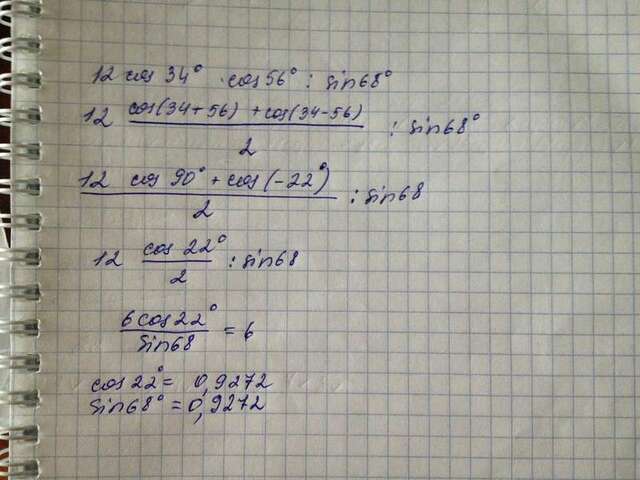 12 cos 34° · cos 56° : sin 68°
12 cos(34+56) + cos(34-56) / 2 : sin 68°
12 cos 90° + cos(-22°) / 2 : sin 68
12 cos 22° / 2 : sin 68
6 cos 22° / sin 68 = 6
cos 22° = 0,9272
sin 68° = 0,9272